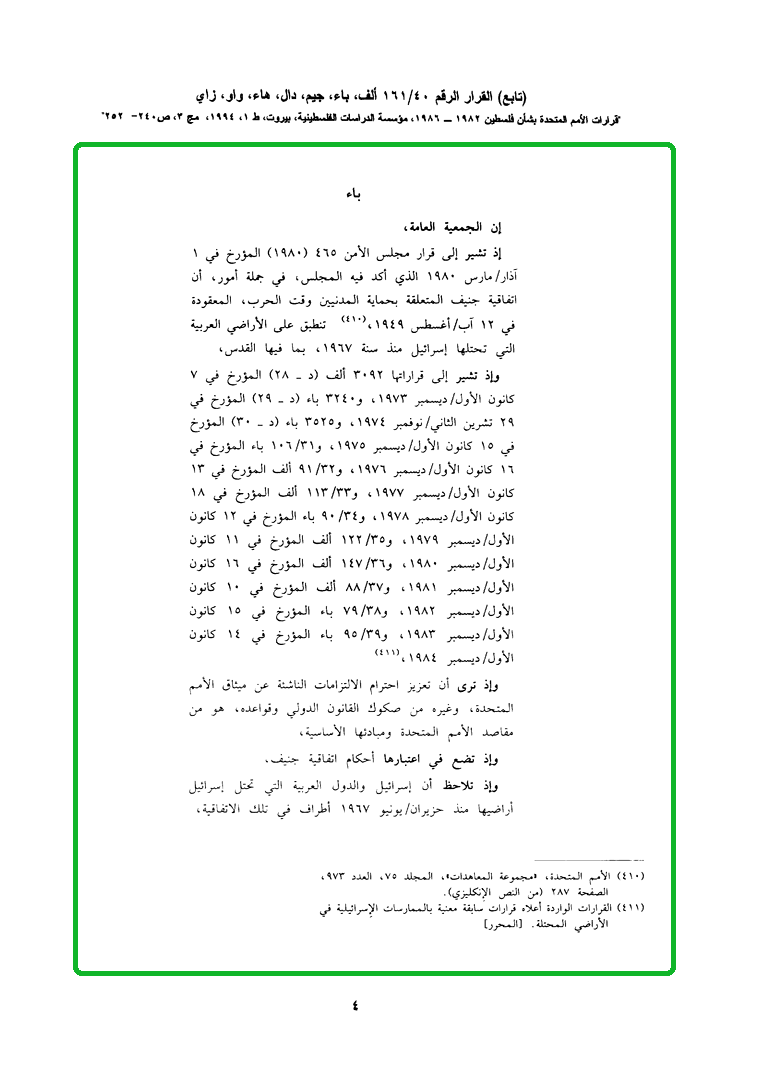 (تابع) القرار الرقم ١٦١/٤٠ ألف، باء، جيم، دال، هاء، واو، زاي
"قرارات الأمم المتحدة بشأن فلسطين ١٩٨٢ ــ ١٩٨٦، مؤسسة الدراسات الفلسطينية، بيروت، ط ١، ١٩٩٤، مج ٣، ص٢٤٠- ٢٥٢"
باء
إن الجمعية العامة،
إذ تشير إلى قرار مجلس الأمن ٤٦٥ (١٩٨٠) المؤرخ في ١
آذار/مارس ١٩٨٠ الذي أكد فيه المجلس، في جملة أمور، أن
اتفاقية جنيف المتعلقة بحماية المدنيين وقت الحرب، المعقودة
في ١٢ آب/أغسطس ١٩٤٩،(٤١٠) تنطبق على الأراضي العربية
التي تحتلها إسرائيل منذ سنة ١٩٦٧، بما فيها القدس،
وإذ تشير إلى قراراتها ٣٠٩٢ ألف (د ـ ٢٨) المؤرخ في ٧
كانون الأول/ديسمبر ١٩٧٣، و٣٢٤٠ باء (د ـ ٢٩) المؤرخ في
٢٩ تشرين الثاني/نوفمبر ١٩٧٤، و٣٥٢٥ باء (د ـ ٣٠) المؤرخ
في ١٥ كانون الأول/ديسمبر ١٩٧٥، و١٠٦/٣١ باء المؤرخ في
١٦ كانون الأول/ديسمبر ١٩٧٦، و٩١/٣٢ ألف المؤرخ في ١٣
كانون الأول/ديسمبر ١٩٧٧، و١١٣/٣٣ ألف المؤرخ في ١٨
كانون الأول/ديسمبر ١٩٧٨، و٩٠/٣٤ باء المؤرخ في ١٢ كانون
الأول/ديسمبر ١٩٧٩، و١٢٢/٣٥ ألف المؤرخ في ١١ كانون
الأول/ديسمبر ١٩٨٠، و١٤٧/٣٦ ألف المؤرخ في ١٦ كانون
الأول/ديسمبر ١٩٨١، و٨٨/٣٧ ألف المؤرخ في ١٠ كانون
الأول/ديسمبر ١٩٨٢، و٧٩/٣٨ باء المؤرخ في ١٥ كانون
الأول/ديسمبر ١٩٨٣، و٩٥/٣٩ باء المؤرخ في ١٤ كانون
الأول/ديسمبر ١٩٨٤،(٤١١)
وإذ ترى أن تعزيز احترام الالتزامات الناشئة عن ميثاق الأمم
المتحدة، وغيره من صكوك القانون الدولي وقواعده، هو من
مقاصد الأمم المتحدة ومبادئها الأساسية،
وإذ تضع في اعتبارها أحكام اتفاقية جنيف،
وإذ تلاحظ أن إسرائيل والدول العربية التي تحتل إسرائيل
أراضيها منذ حزيران/يونيو ١٩٦٧ أطراف في تلك الاتفاقية،
(٤١٠) الأمم المتحدة، «مجموعة المعاهدات»، المجلد ٧٥، العدد ٩٧٣،
الصفحة ٢٨٧ (من النص الإنكليزي).
(٤١١) القرارات الواردة أعلاه قرارات سابقة معنية بالممارسات الإسرائيلية في
الأراضي المحتلة. [المحرر]
٤